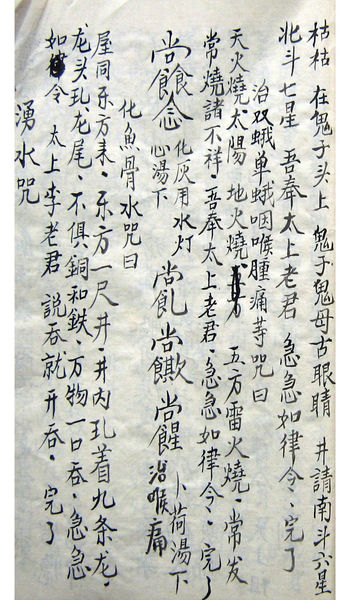 枯枯 在鬼子头上 鬼子鬼母古眼睛 井請南斗六星
北斗七星 吾奉太上老君 急急如律令、完了
治双蛾单蛾咽喉腫痛等咒曰
天火燒太陽 地火燒 方 五方雷火燒、常发
常燒諸不祥、吾奉太上老君、急急如律令、完了
化灰用水灯
心湯下
卜荷湯下
治喉痛
化魚骨水咒曰
屋同东方来、东方一尺井、井内孔着九条龙、
龙头孔龙尾、不俱銅和鉄、万物一口吞、急急
如令 太上李老君 説吞就开吞、完了
湧水咒